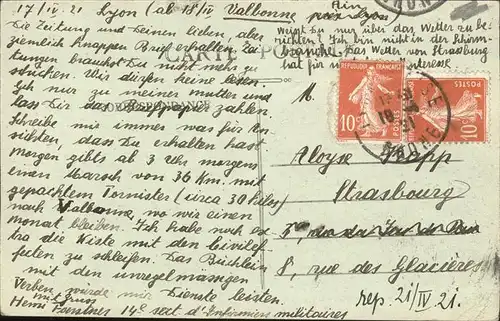 17/IV. 21 Lyon (ab 18/IV Valbonne, Ain
près Lyon
Die Zeitung und Deinen lieben, aber
ziemlich knappen Brief erhalten. Zei-
tungen brauchst Du nicht mehr zu
schicken. Wir dürfen keine lesen
Ich nur zu meiner mutter und
lass Dir das zahlen
Schreibe mir immer was für
sichten, dass Du erhalten hast
Morgen gibts ab 3 Uhr morgens
einen Marsch von 36 Km. mit
gepacktem Tornister (circa 30 kilos)
nach Valbonne, wo wir einen
monat bleiben. Ich habe noch ex-
tra die Kiste mit den civilef-
feten zu schleifen. Das Büchlein
mit den unregelmässigen
Verben würde mir Dienste leisten.
mit Gruss
Henri Forstner 14e sect. d'Infirmiers militaires
weisst Du nur über das Wetter zu be-
richten? Ich bin nicht in der Schirm-
branche. Das Wetter von Strassburg
hat für interesse
CARTE POSTALE
CORRESPONDANCE
RÉPUBLIQUE FRANÇAISE
10c
POSTES
10c
POSTES
RHONE
RHONE
M.
Aloyse Rapp
Strasbourg
5, rue du Jeu de
8, rue des Glacières
rep. 21/IV 21.